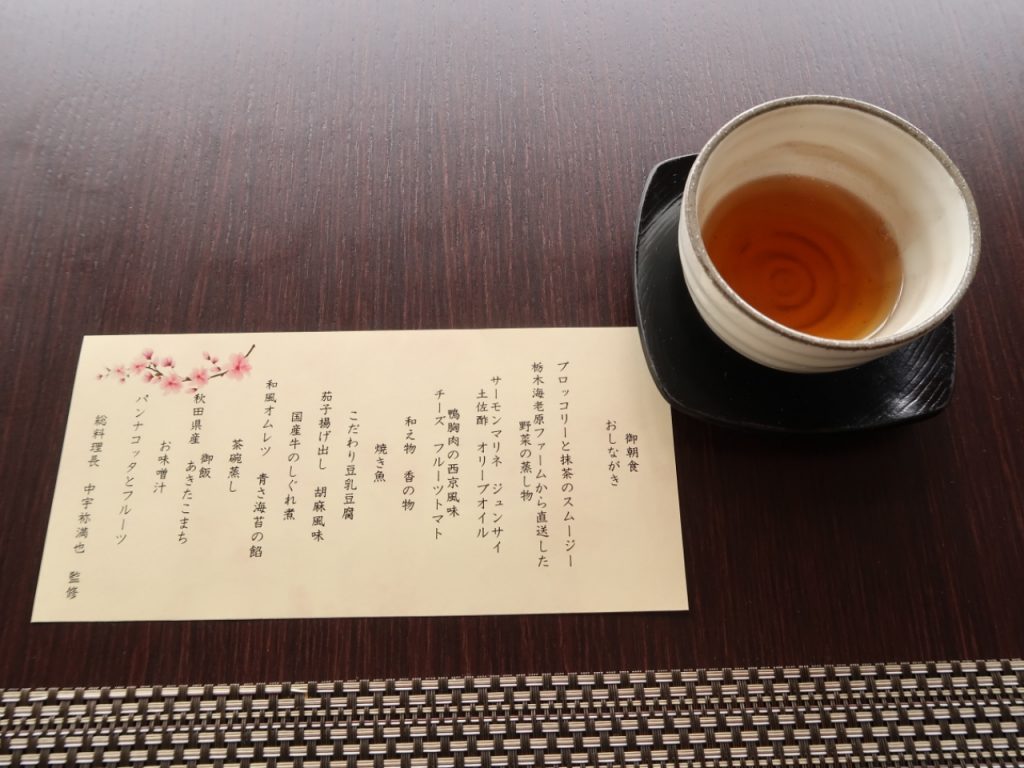 御朝食
おしながき
ブロッコリーと抹茶のスムージー
栃木海老原ファームから直送した
野菜の蒸し物
サーモンマリネ　ジュンサイ
土佐酢　オリーブオイル
鴨胸肉の西京風味
チーズ　フルーツトマト
和え物　香の物
焼き魚
こだわり豆乳豆腐
茄子揚げ出し　胡麻風味
国産牛のしぐれ煮
和風オムレツ　青さ海苔の餡
茶碗蒸し
御飯
秋田県産　あきたこまち
お味噌汁
パンナコッタとフルーツ
総料理長　中宇祢満也　監修